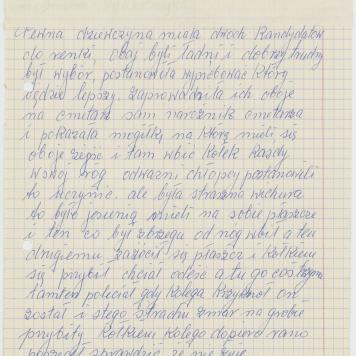 Pewna dziewczyna miała dwóch kandydatów
do renki, obaj byli ładni i dobrzy trudny
był wybór, postanowiła wyprubować który
będzie lepszy. zaprowadziła ich oboje
na cmętarz sam narożnik cmętarza
i pokazała mogiłkę na którą mieli się
oboje zejść i tam wbić kołek każdy
w swój róg odważni chłopcy postanowili
to uczynić. ale była straszna wichura
to było jesienią mieli na sobie płaszcze
i ten co był zbrzegu od nóg wbił a ten
drugiemu zarzucił się płaszcz i kołkiem
się przybił chciał odejść a tu go coś trzyma
tamten poleciał gdy kolega krzyknoł on
został i stego strachu zmar na grobie
przybity kołkiem kolego dopiero rano
poszedł sprawdzić że nie żyje